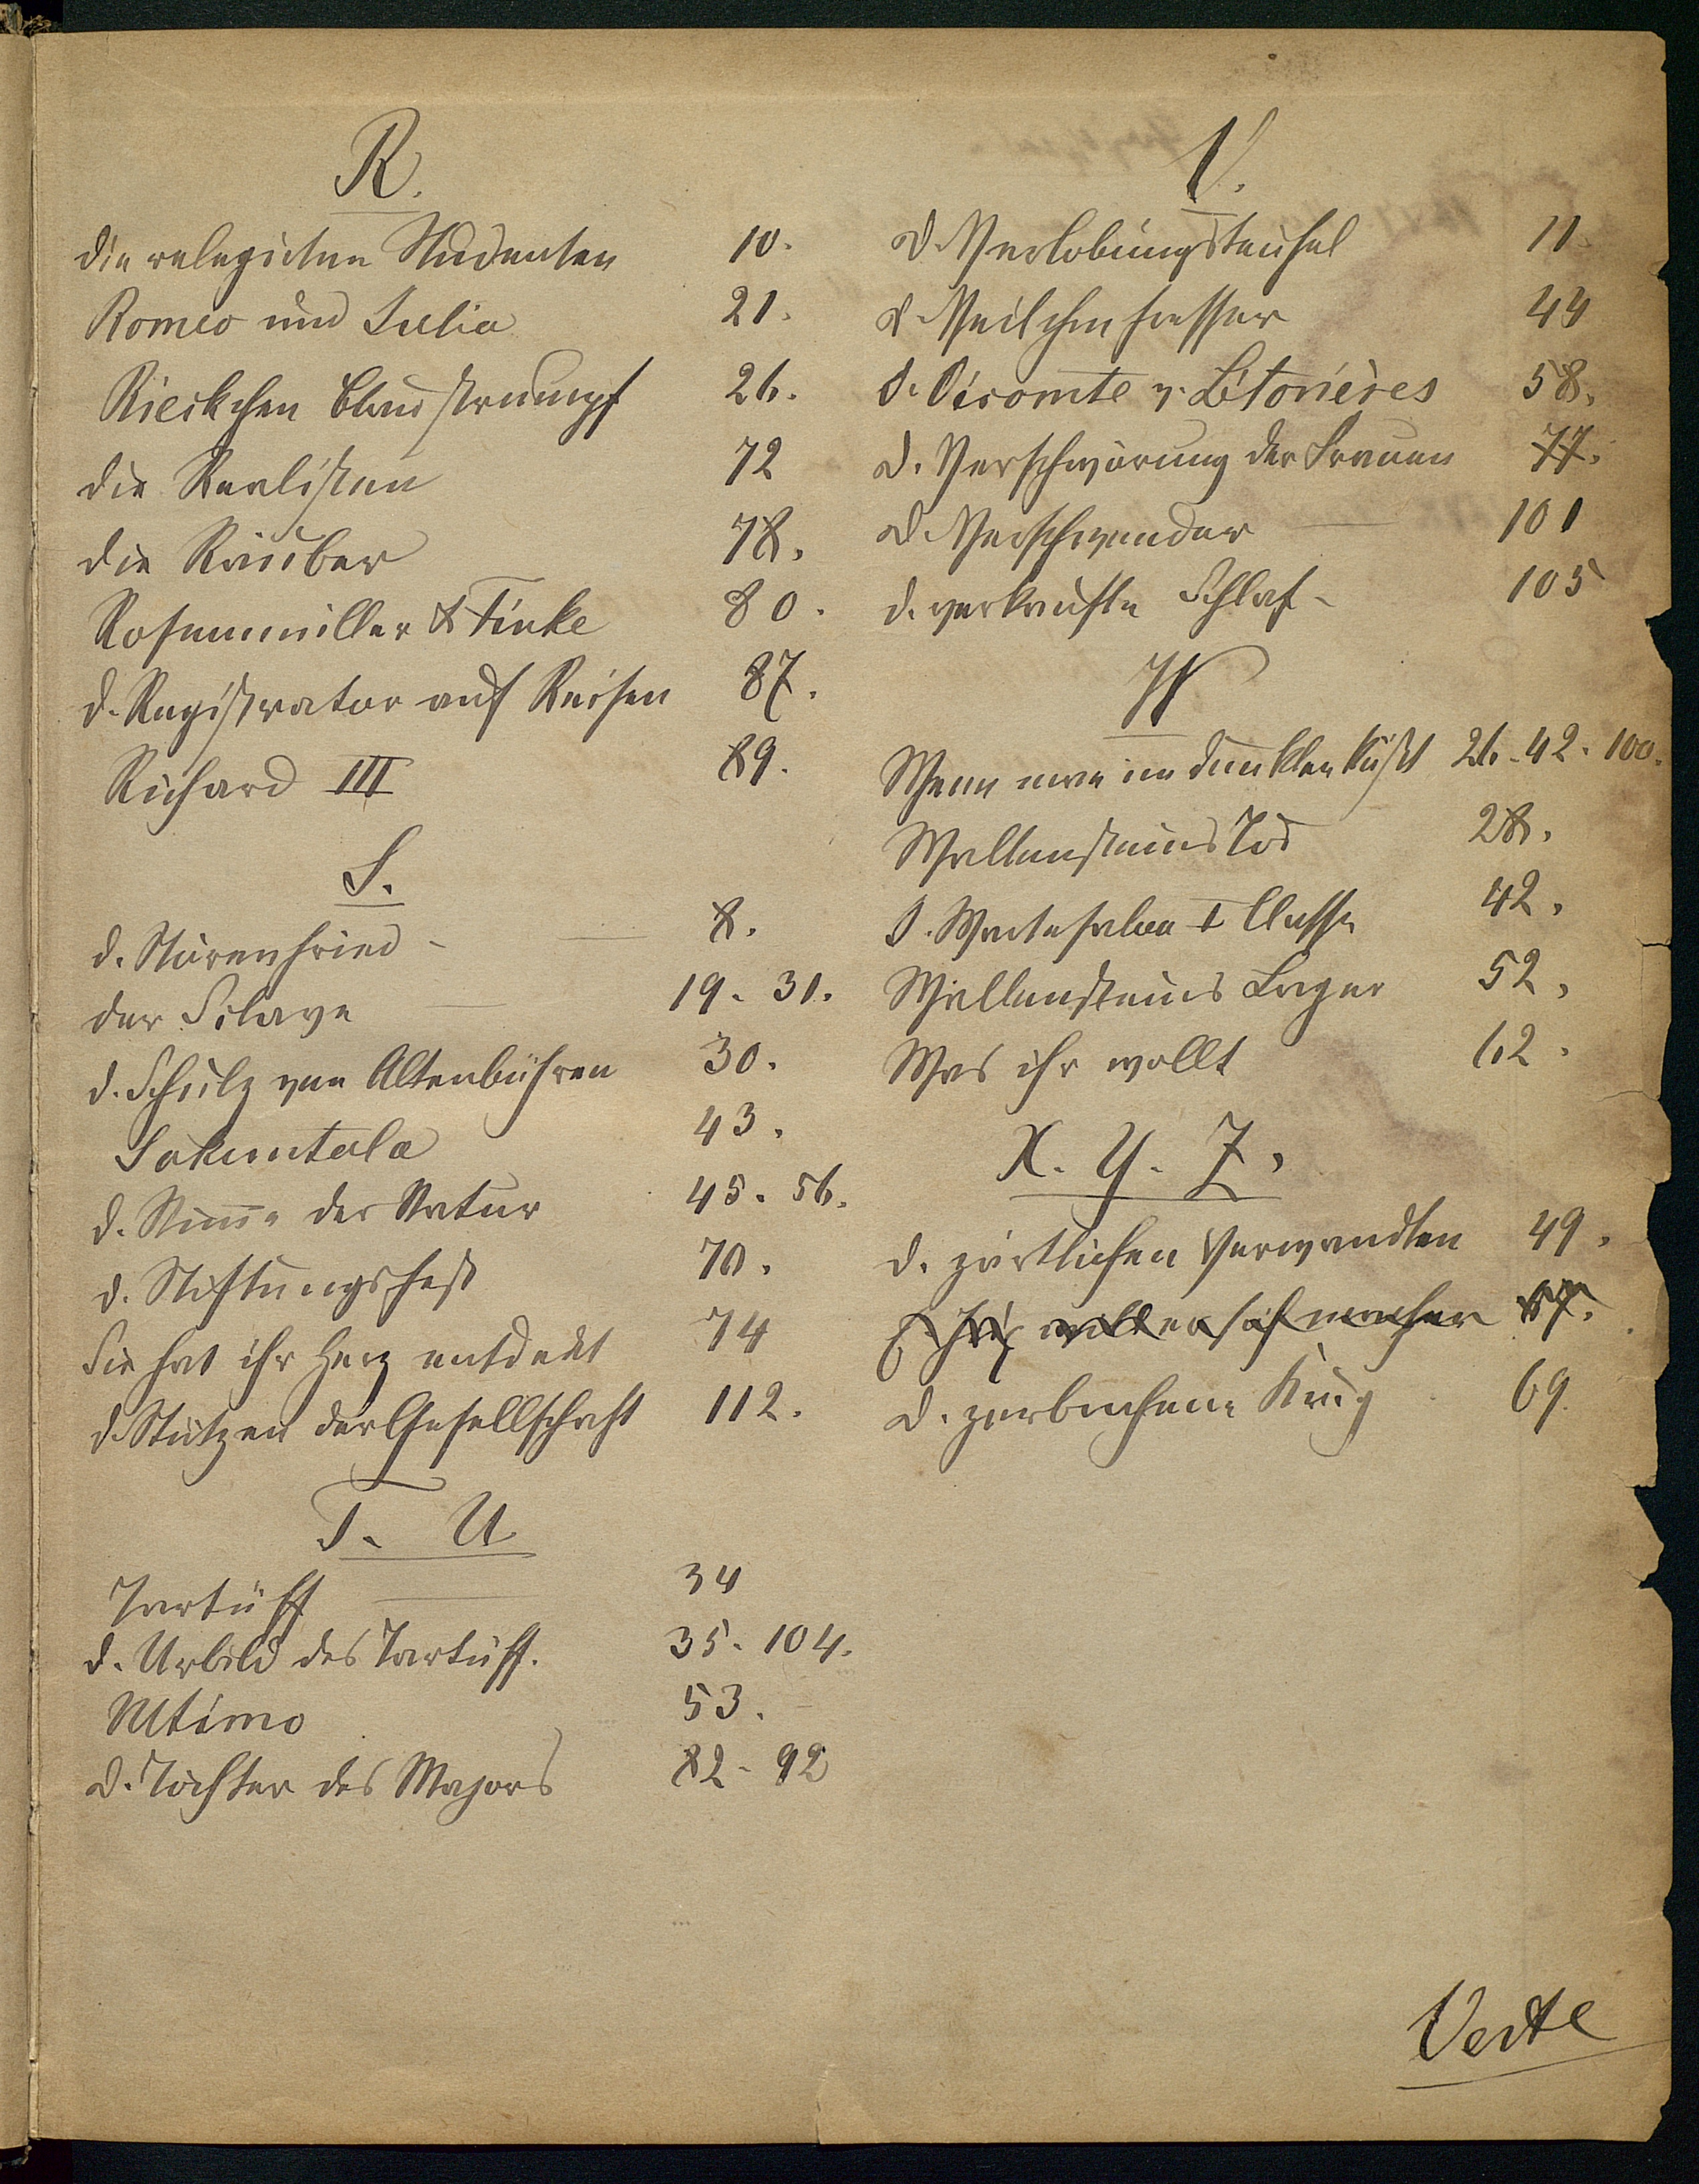 R.
die relegirten Studenten 10.
Romeo und Julia 21.
Rieckchen Blaustrumpf 26.
die Realisten 72
die Räuber 78.
Rosenmüller & Finke 80.
d. Registrator auf Reisen 87.
Richard III 89.
S.
d. Störenfried - 8.
der Sclave 19. 31.
d. Schulz von Altenbühren 30.
Sakuntala 43.
d. Stim̄e der Natur 45. 56.
d. Stiftungsfest 70.
Sie hat ihr Herz entdekt 74
d. Stützen der Gesellschaft 112.
T. U
Tartüff 34
d. Urbild des Tartüff. 35. 104.
Ultimo 53.
D. Töchter des Majors 82 - 92
V.
D. Verlobungsteufel 11.
D. Veilchenfresser 44
D. Vicomte v. Létorières 58.
D. Verschwörung der Frauen 77.
D. Verschwender 101
d. verkaufte Schlaf - 105
W
Wenn man im Dunklen küßt 26. 42. 100.
Wallensteins Tod 28.
D. Wartesalon I Classe 42.
Wallensteins Lager 52.
Was ihr wollt 62.
X. Y. Z.
d. zärtlichen Verwandten 49.
will er sich machen 67.
D. zerbrochene Krug 69.
Verte